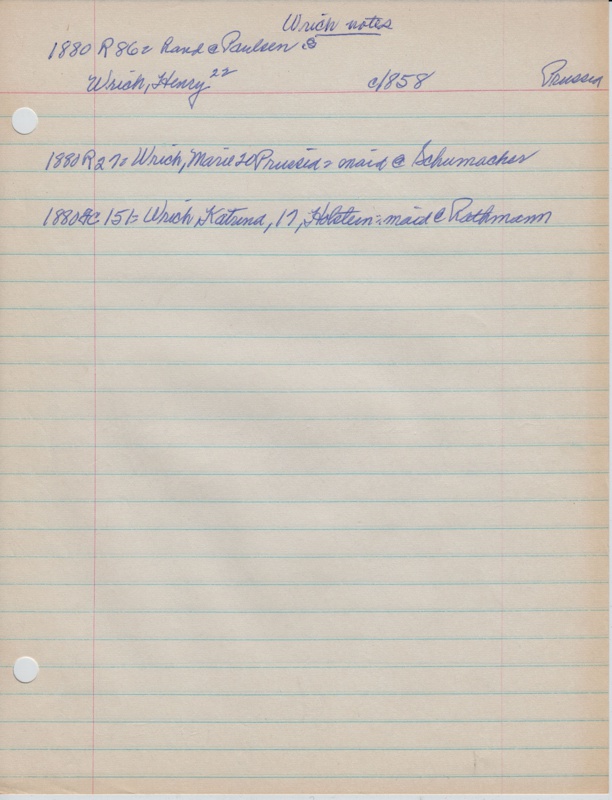 Wrich notes
1880 R 86 = hand @ Paulsen
Wrich, Henry 22 c1858 Prussia
1880 R 27 = Wrich, Marie 20 Prussia = maid @ Schumacher
1880 151 = Wrich, Katrena, 17, Holstein = maid @ Rathmann